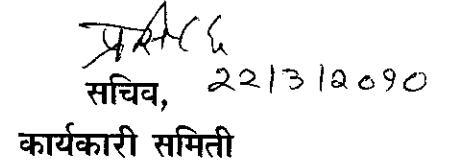 सचिव, 22/3/2010
कार्यकारी समिती